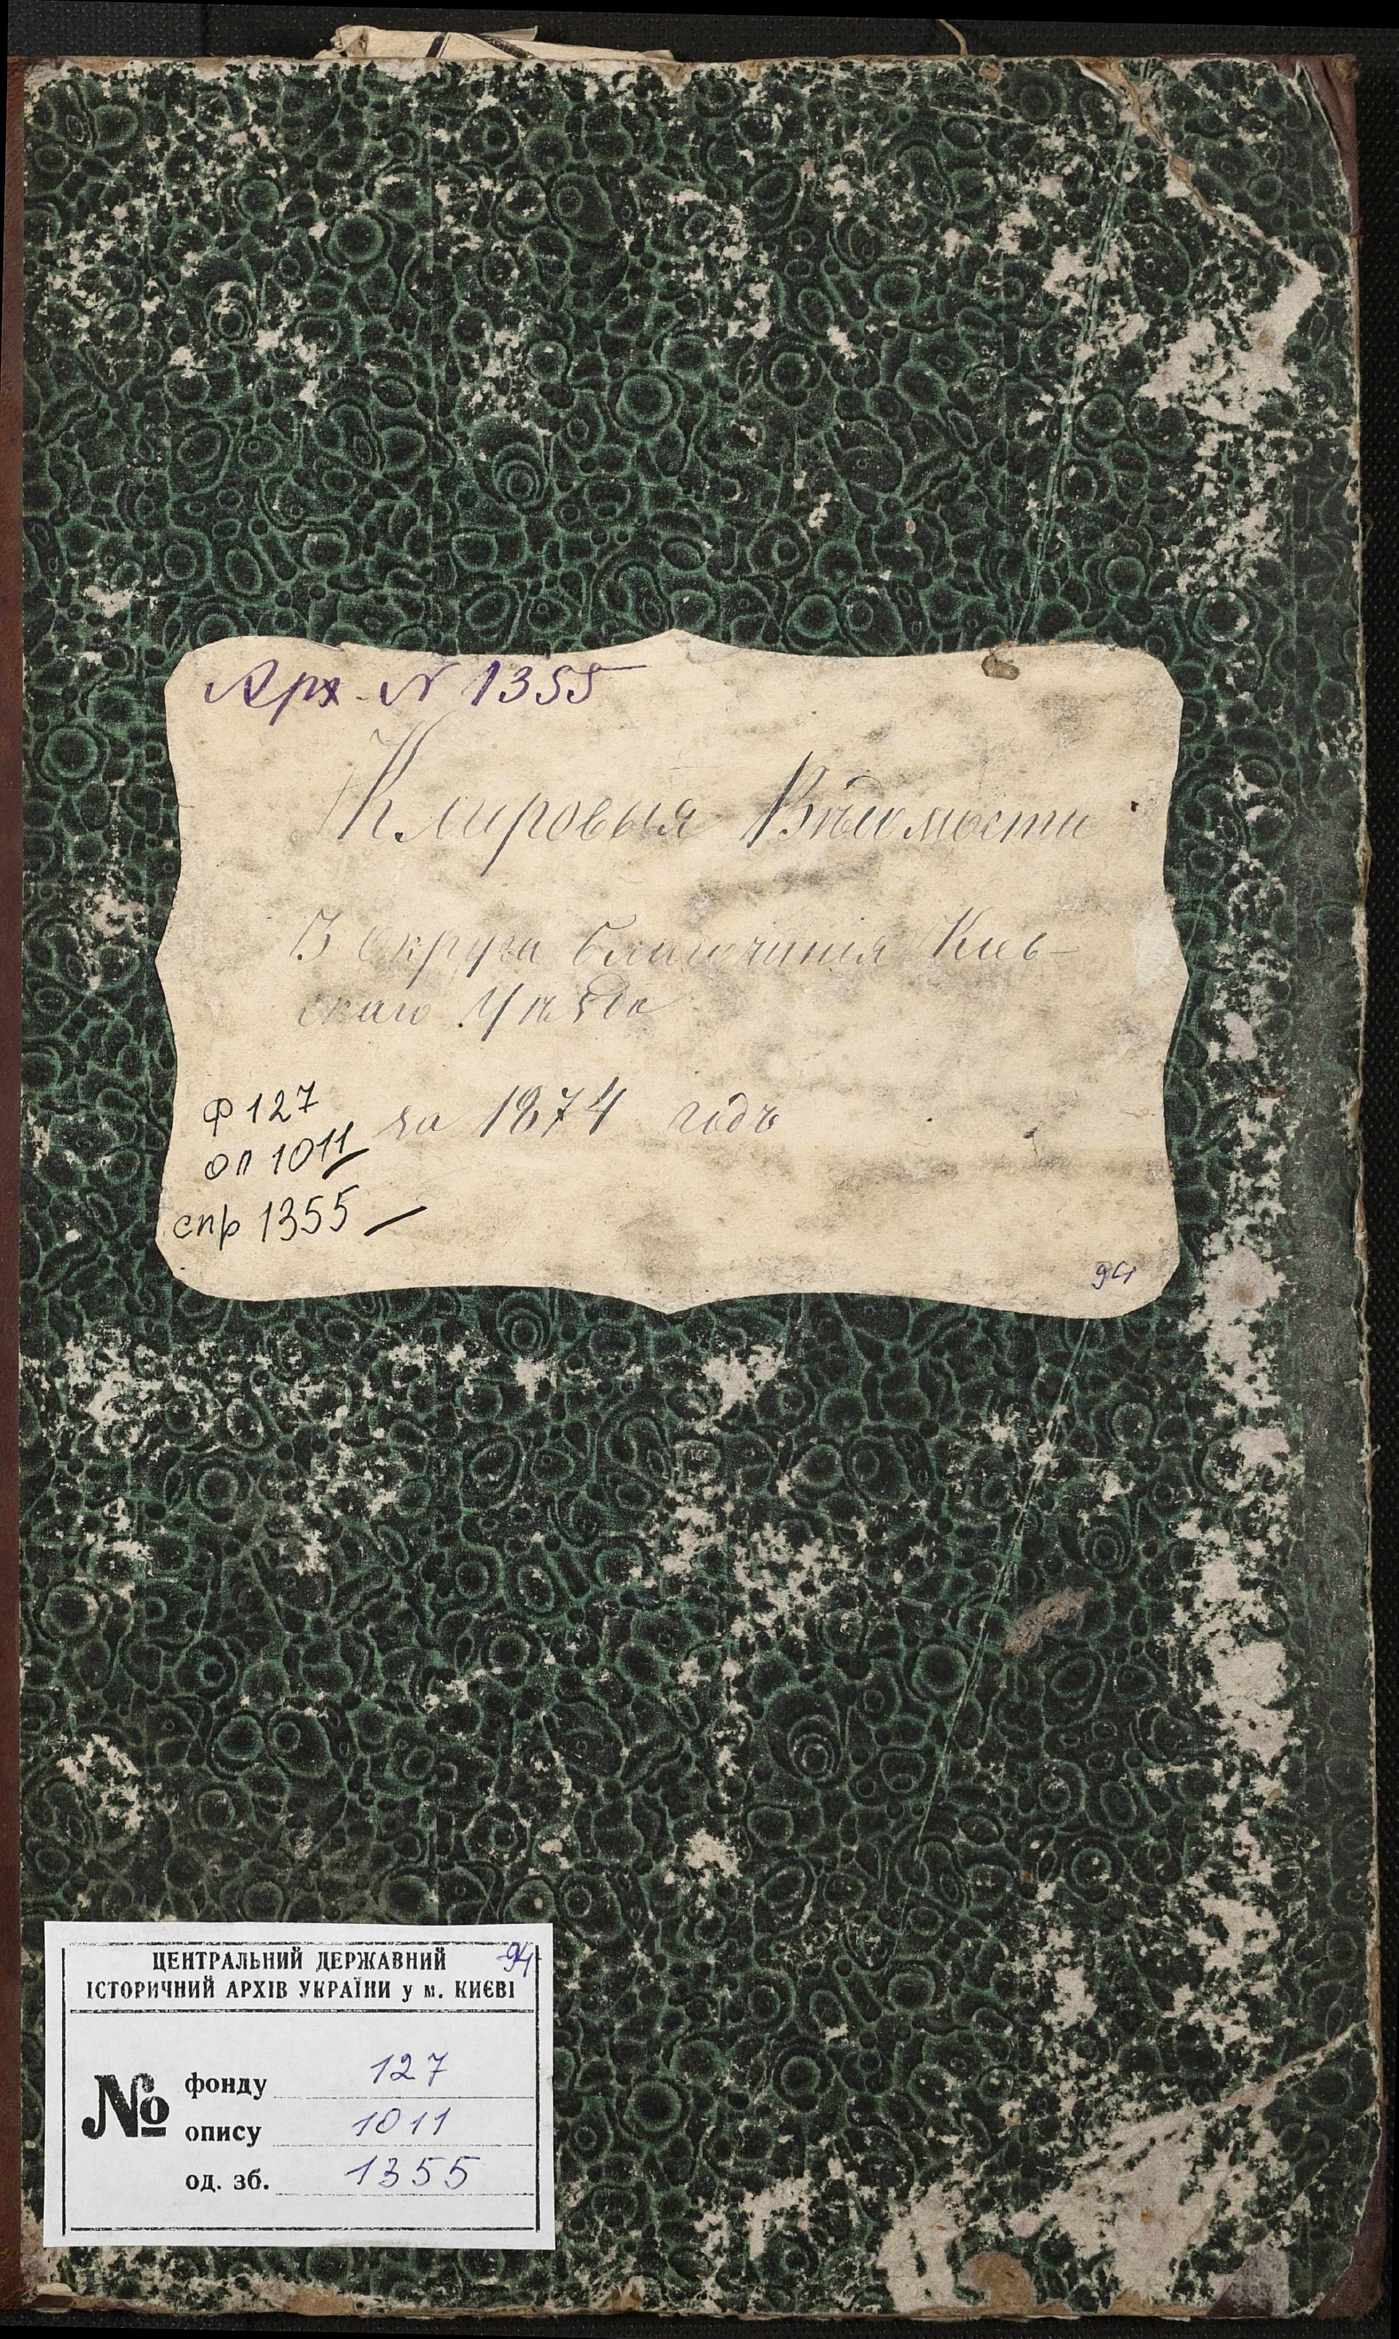 Арх. N 1355
Клировыя Вѣдомости
3 округа благочинія Кіев-
скаго Уѣзда
за 1874 годъ
Ф 127
оп 1011
спр 1355
94
ЦЕНТРАЛЬНИЙ ДЕРЖАВНИЙ 94
ІСТОРИЧНИЙ АРХІВ УКРАЇНИ у м. КИЄВІ
№ фонду 127
опису 1011
од. зб. 1355